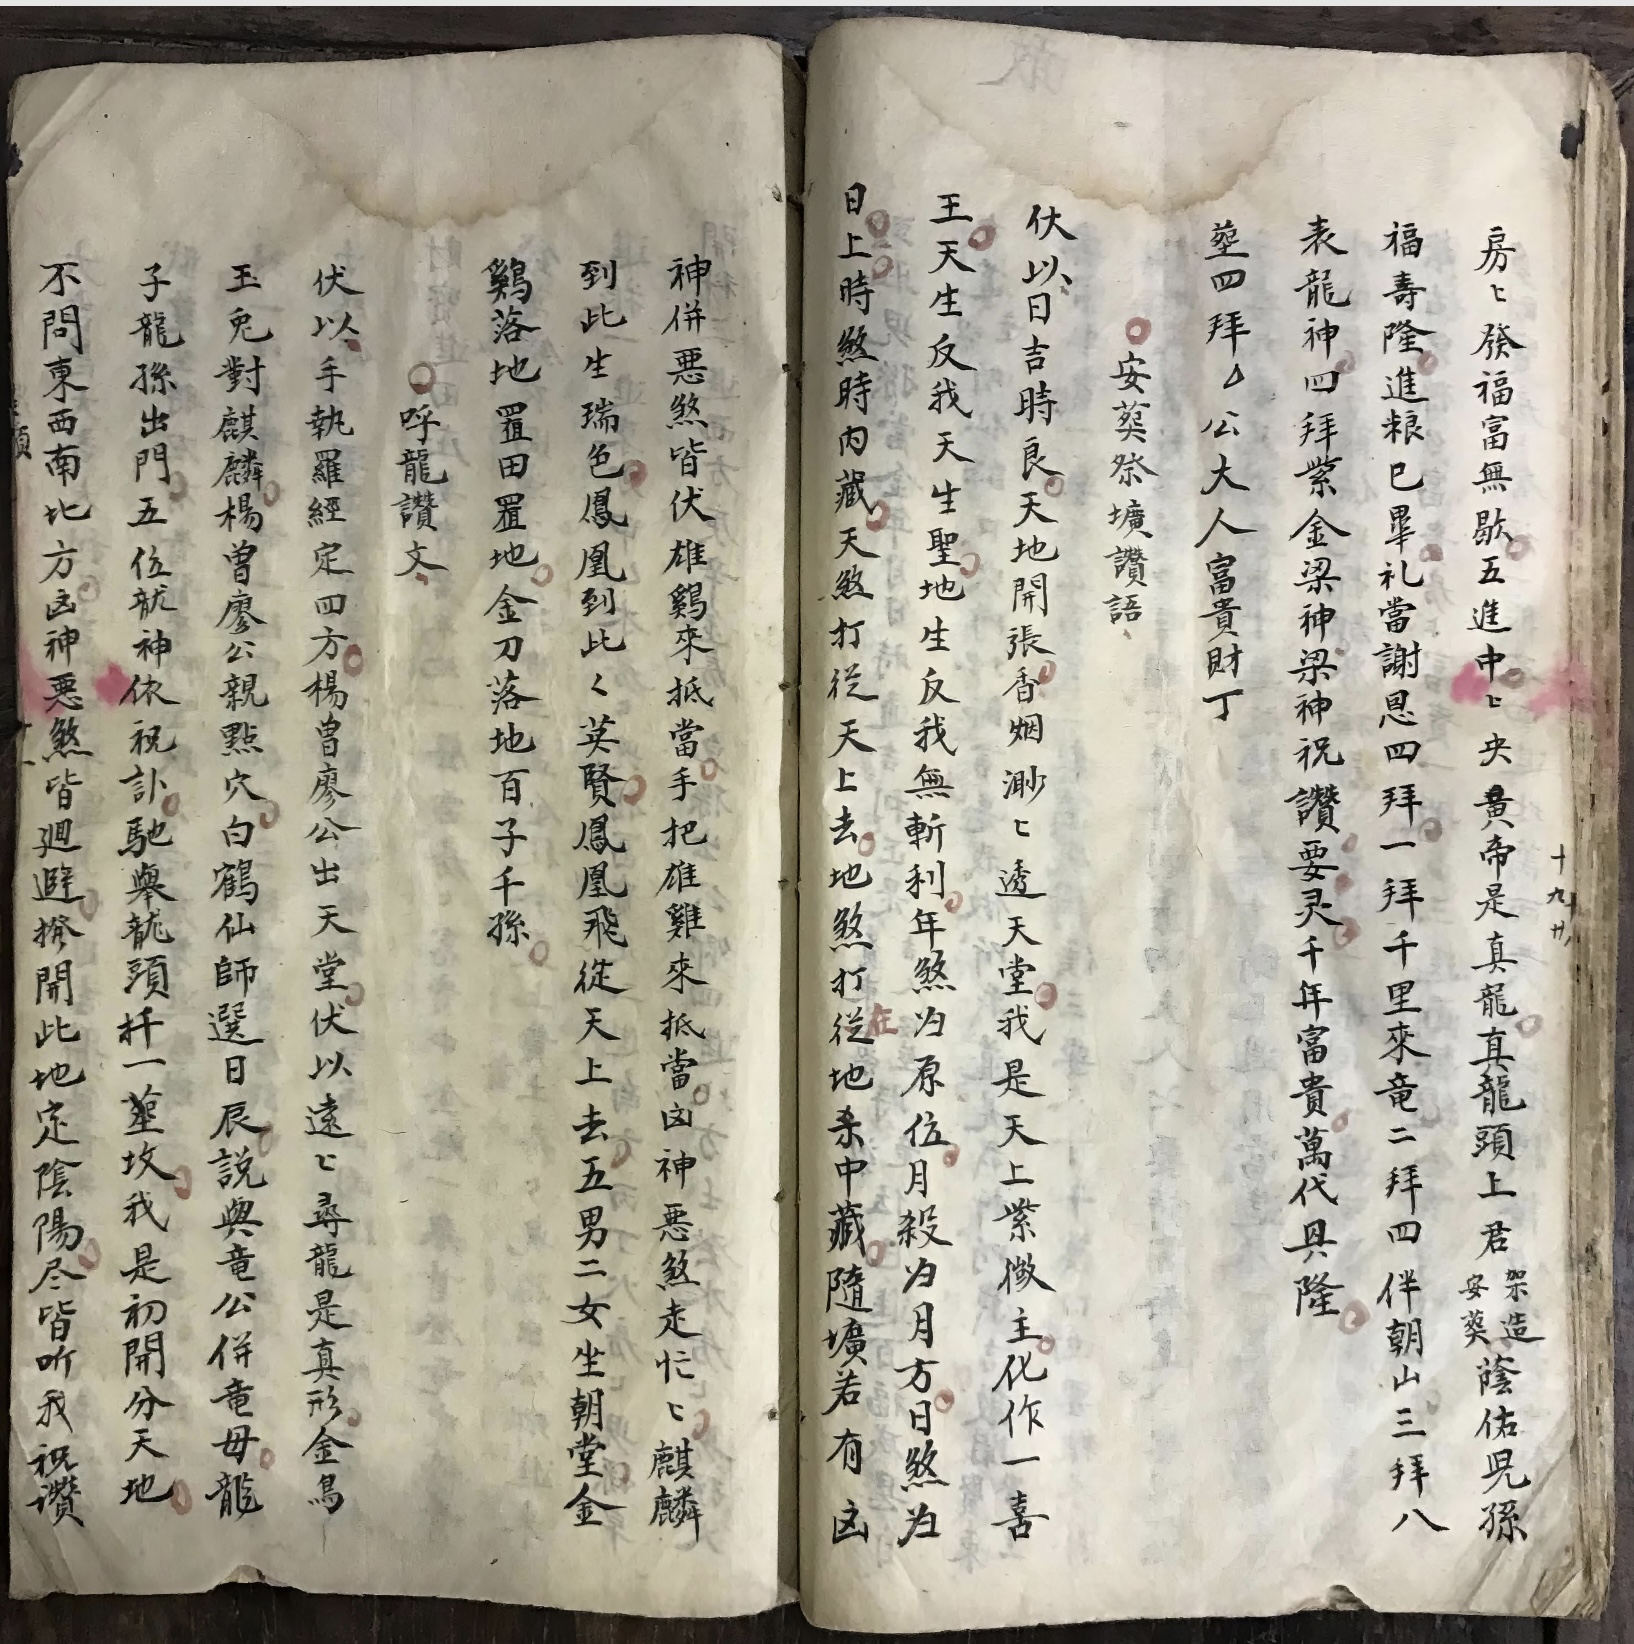 房〻發福富無歇五進中〻央黃帝是真龍真龍頭上君架造安葵蔭佑児孫
福壽隆進粮已畢礼當謝恩四拜一拜千里來竜二拜四伴朝山三拜八
表龍神四拜紫金梁神梁神祝讚要灵千年富貴萬代具隆
塟四拜厶公大人富貴財丁
安葵祭壙讚語
伏以日吉時良天地開張香烟渺〻透天堂我是天上紫微主化作一喜
王天生反我天生聖地生反我無斬利年煞归原位月殺归月方日煞归
日上時煞時內藏天煞打従天上去地煞打従在地杀中藏隨壙若有凶
神併悪煞皆伏雄鷄來抵當手把雄雞來抵當凶神悪煞走忙〻麒麟
到此生瑞色鳳凰到此〱英賢鳳凰飛従天上去五男二女坐朝堂金
鷄落地置田置地金刀落地百子千孫
呼龍讚文
伏以手執羅經定四方楊曾廖公出天堂伏以遠〻尋龍是真形金烏
玉兎對麒麟楊曾廖公親點穴白鶴仙師選日辰説與竜公併竜母龍
子龍孫出門五位龍神依祝訃馳舉龍頭扦一塟坟我是初開分天地
不問東西南北方凶神悪煞皆迴避撥開此地定陰陽尽皆听我祝讚
十九廿